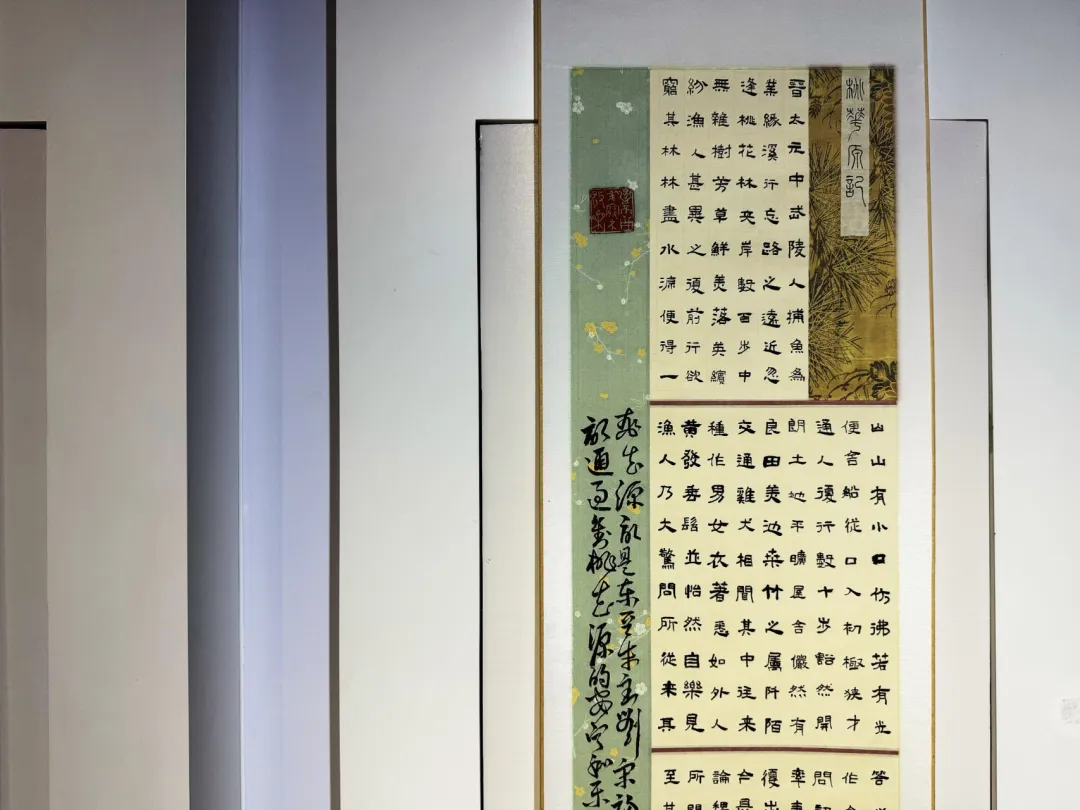 桃華原記
晉太元中武陵人捕魚為
業緣溪行忘路之遠近忽
逢桃花林夾岸數百步中
無雜樹芳草鮮美落英繽
紛漁人甚異之復前行欲
窮其林林盡水源便得一
山山有小口仿彿若有光
便舍船從口入初極狹才
通人復行數十步豁然開
朗土地平曠屋舍儼然有
良田美池桑竹之屬阡陌
交通雞犬相聞其中往來
種作男女衣著悉如外人
黃發垂髫並怡然自樂見
漁人乃大驚問所從來具
答
作
問
率妻
復出
今是
論魏
所聞
至其
桃花源記是東晉末至劉宋初
記通過對桃花源的安寧和樂